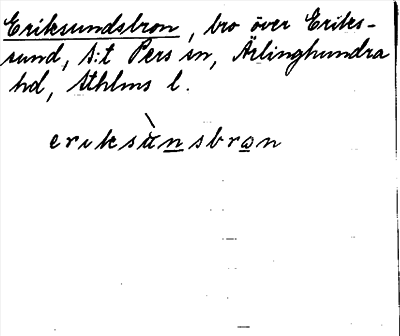 Eriksundsbron, bro över Eriks-
sund, S:t Pers sn, Ärlinghundra
hd, Sthlms l.
eriksùnsbron